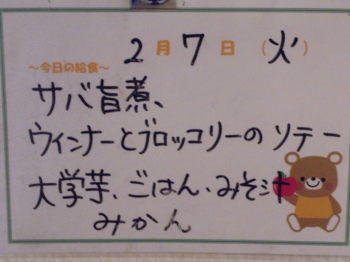 2月7日(火)
～今日の給食～
サバ旨煮、
ウィンナーとブロッコリーのソテー
大学芋、ごはん、みそ汁
みかん